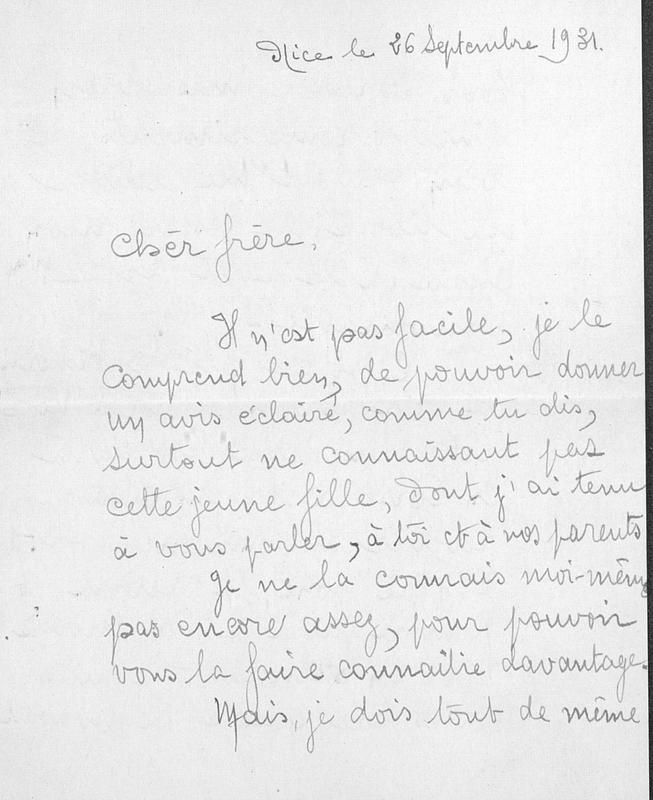 Nice le 26 Septembre 1931.
Chèr frère,
Il n'est pas facile, je le
comprend bien, de pouvoir donner
un avis éclairé, comme tu dis,
surtout ne connaissant pas
cette jeune fille, dont j'ai tenu
à vous parler, à toi et à nos parents
Je ne la connais moi-même
pas encore assez, pour pouvoir
vous la faire connaître davantage.
Mais, je dois tout de même